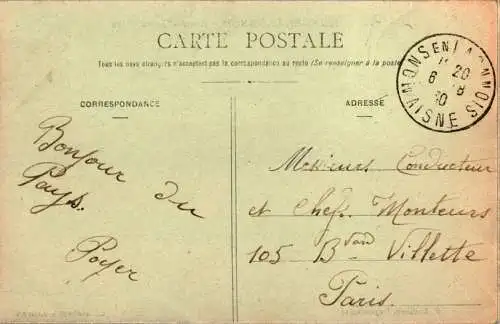 CARTE POSTALE
Tous les pays étrangers n'acceptent pas la correspondance au recto (Se renseigner à la poste
CORRESPONDANCE
ADRESSE
MONS EN LAONNOIS
20
6 8
10
AISNE
Bonjour du
Pays.
Poyer
Messieurs Conducteur
et Chef Monteurs
105 Bvard Villette
Paris.